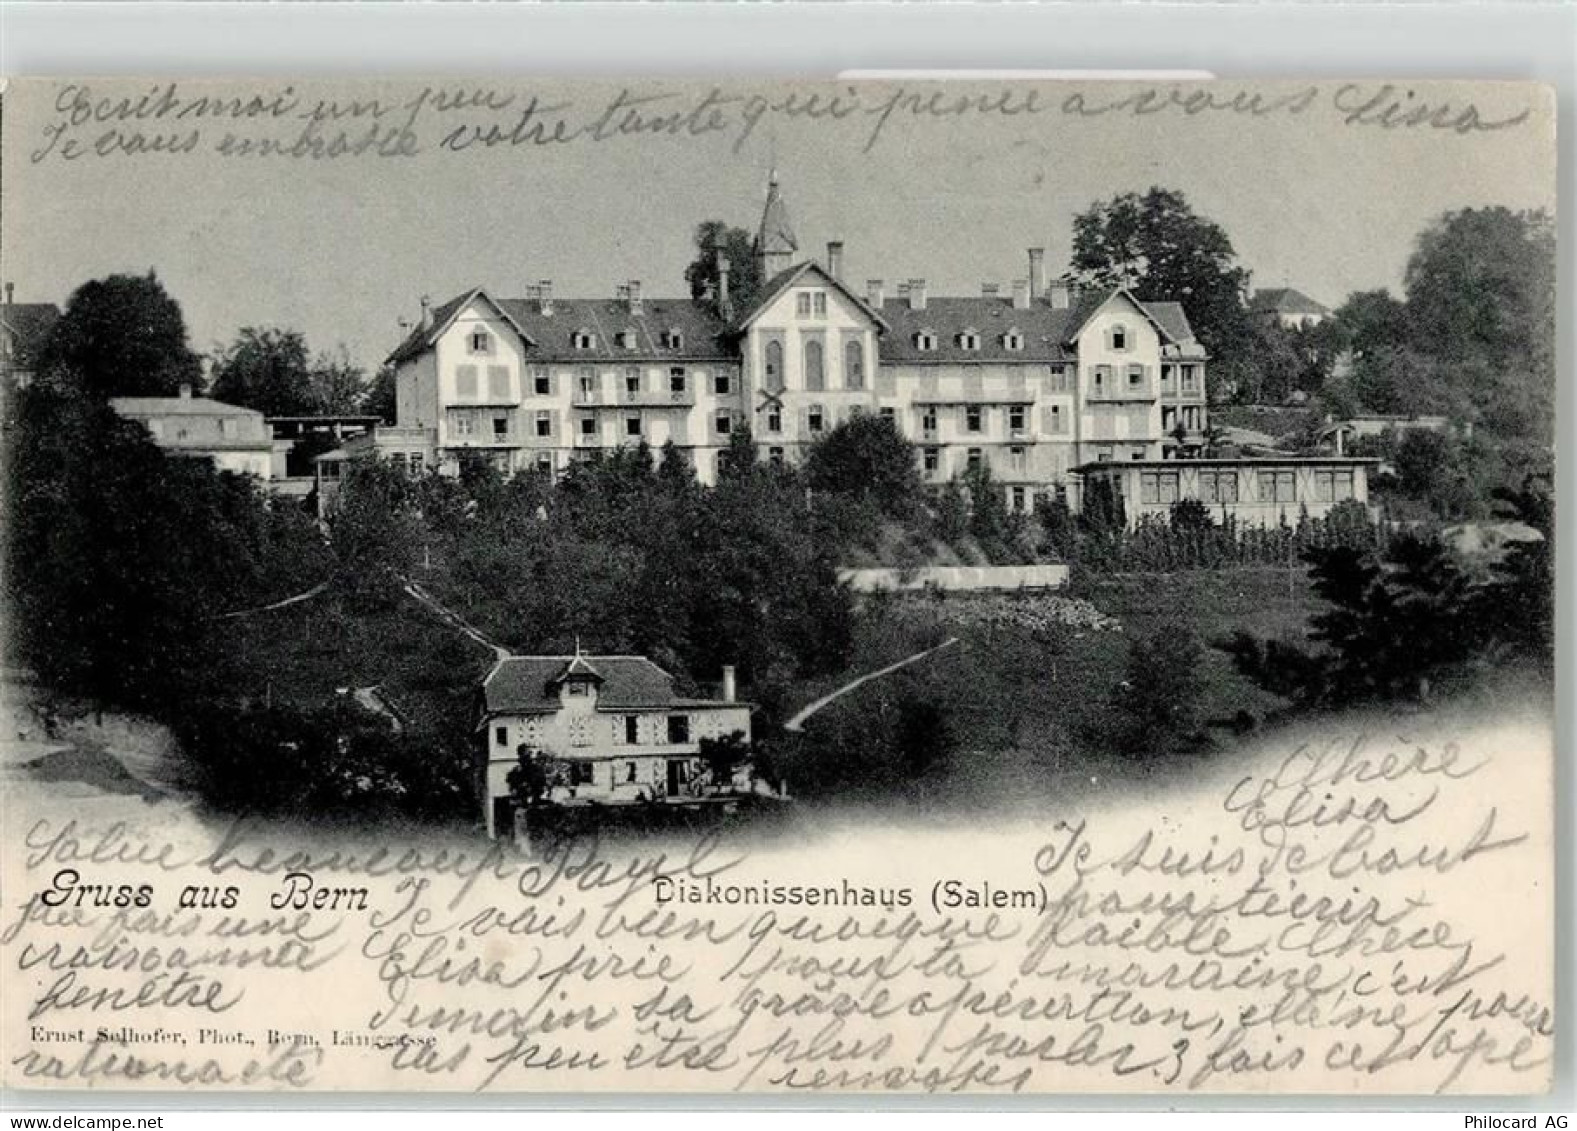 Ecrit moi un peu
Je vous embrasse votre tante qui pense a vous Lina
Chère
Elisa
Salue beaucoup Paul
Je suis debout
Gruss aus Bern
Diakonissenhaus (Salem)
pour t'écrir
j'ai fais une
Je vais bien quoique
faible. Chère
croix a une
Elisa prie pour ta
maraine c'est
fenêtre
demain sa grave opérertion, elle ne pour
Ernst Selhofer, Phot., Bern, Länggasse
ras peu être plus parler. 3 fois cet opé